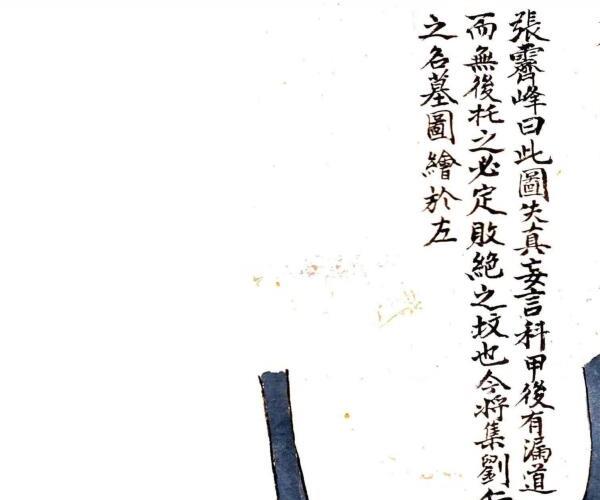 張霽峰曰此圖失真妄言科甲後有漏道
而無後托之必定敗絕之坟也今将集劉
之名墓圖繪於左